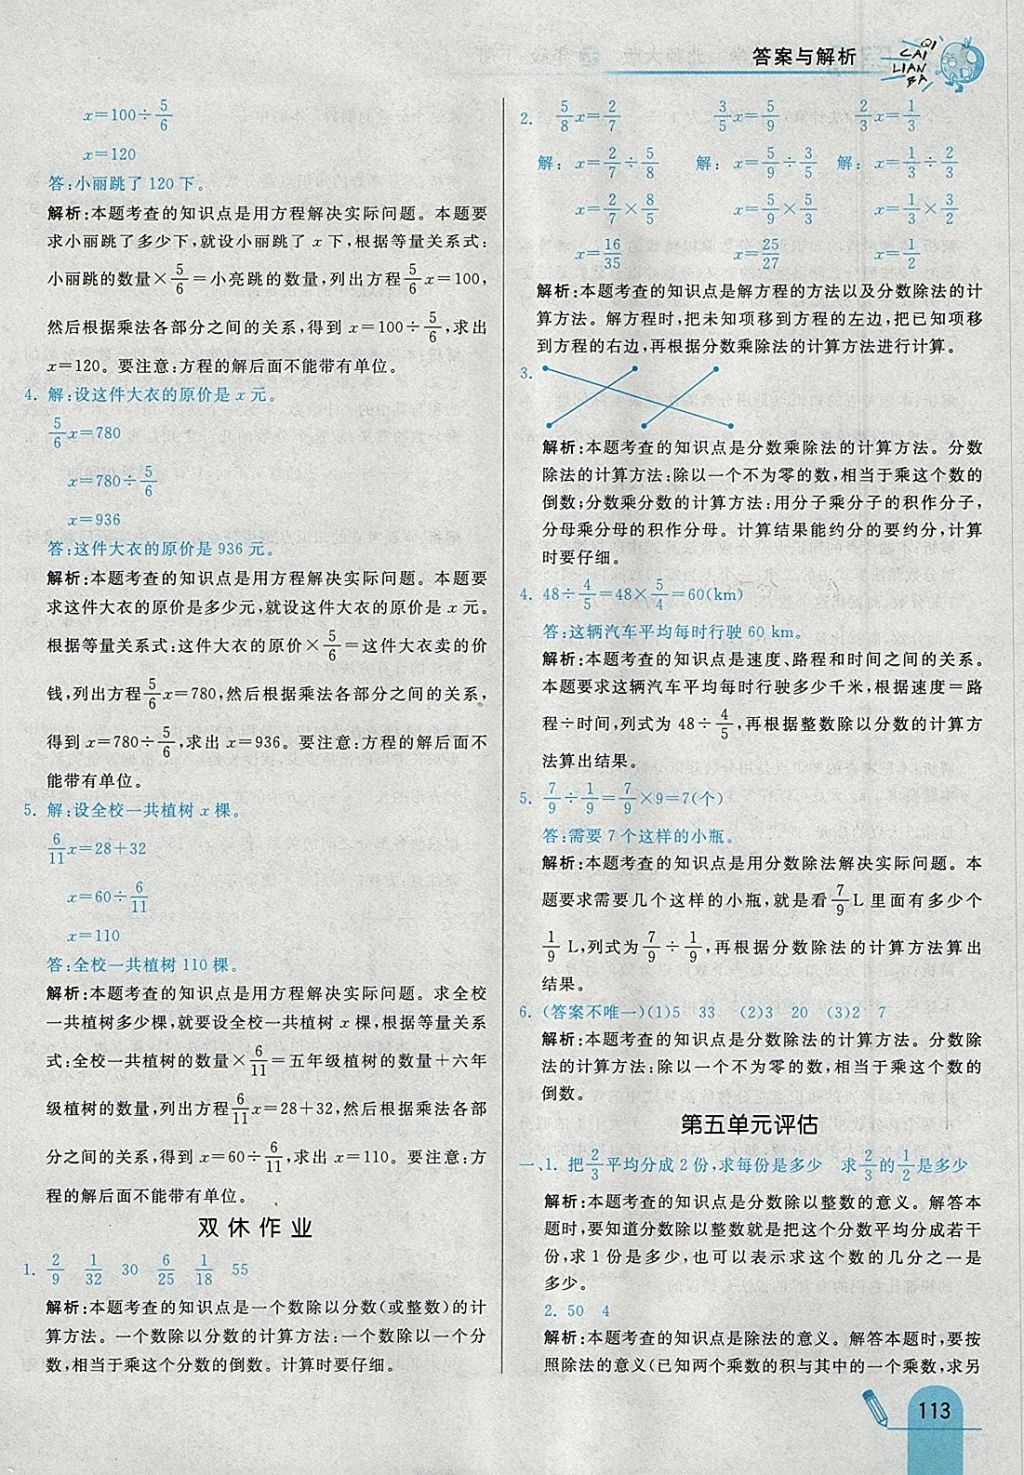 答案与解析
QI
CAI
LIAN
BA
x=100÷5/6
x=120
答:小丽跳了120下。
解析:本题考查的知识点是用方程解决实际问题。本题要
求小丽跳了多少下,就设小丽跳了x下,根据等量关系式:
小丽跳的数量×5/6=小亮跳的数量,列出方程5/6x=100,
然后根据乘法各部分之间的关系,得到x=100÷5/6,求出
x=120。要注意:方程的解后面不能带有单位。
4. 解:设这件大衣的原价是x元。
5/6x=780
x=780÷5/6
x=936
答:这件大衣的原价是936元。
解析:本题考查的知识点是用方程解决实际问题。本题要
求这件大衣的原价是多少元,就设这件大衣的原价是x元。
根据等量关系式:这件大衣的原价×5/6=这件大衣卖的价
钱,列出方程5/6x=780,然后根据乘法各部分之间的关系,
得到x=780÷5/6,求出x=936。要注意:方程的解后面不
能带有单位。
5. 解:设全校一共植树x棵。
6/11x=28+32
x=60÷6/11
x=110
答:全校一共植树110棵。
解析:本题考查的知识点是用方程解决实际问题。求全校
一共植树多少棵,就要设全校一共植树x棵,根据等量关系
式:全校一共植树的数量×6/11=五年级植树的数量+六年
级植树的数量,列出方程6/11x=28+32,然后根据乘法各部
分之间的关系,得到x=60÷6/11,求出x=110。要注意:方
程的解后面不能带有单位。
双休作业
1. 2/9 1/32 30 6/25 1/18 55
解析:本题考查的知识点是一个数除以分数(或整数)的计
算方法。一个数除以分数的计算方法:一个数除以一个分
数,相当于乘这个分数的倒数。计算时要仔细。
2. 5/8x=2/7 3/5x=5/9 2/3x=1/3
解:x=2/7÷5/8 解:x=5/9÷3/5 解:x=1/3÷2/3
x=2/7×8/5 x=5/9×5/3 x=1/3×3/2
x=16/35 x=25/27 x=1/2
解析:本题考查的知识点是解方程的方法以及分数除法的计
算方法。解方程时,把未知项移到方程的左边,把已知项移
到方程的右边,再根据分数乘除法的计算方法进行计算。
3.
解析:本题考查的知识点是分数乘除法的计算方法。分数
除法的计算方法:除以一个不为零的数,相当于乘这个数的
倒数;分数乘分数的计算方法:用分子乘分子的积作分子,
分母乘分母的积作分母。计算结果能约分的要约分,计算
时要仔细。
4. 48÷4/5=48×5/4=60(km)
答:这辆汽车平均每时行驶60 km。
解析:本题考查的知识点是速度、路程和时间之间的关系。
本题要求这辆汽车平均每时行驶多少千米,根据速度=路
程÷时间,列式为48÷4/5,再根据整数除以分数的计算方
法算出结果。
5. 7/9÷1/9=7/9×9=7(个)
答:需要7个这样的小瓶。
解析:本题考查的知识点是用分数除法解决实际问题。本
题要求需要几个这样的小瓶,就是看7/9L里面有多少个
1/9L,列式为7/9÷1/9,再根据分数除法的计算方法算出
结果。
6. (答案不唯一)(1)5 33 (2)3 20 (3)2 7
解析:本题考查的知识点是分数除法的计算方法。分数除
法的计算方法:除以一个不为零的数,相当于乘这个数的
倒数。
第五单元评估
一、1. 把2/3平均分成2份,求每份是多少 求2/3的1/2是多少
解析:本题考查的知识点是分数除以整数的意义。解答本
题时,要知道分数除以整数就是把这个分数平均分成若干
份,求1份是多少,也可以表示求这个数的几分之一是
多少。
2. 50 4
解析:本题考查的知识点是除法的意义。解答本题时,要按
照除法的意义(已知两个乘数的积与其中的一个乘数,求另
113